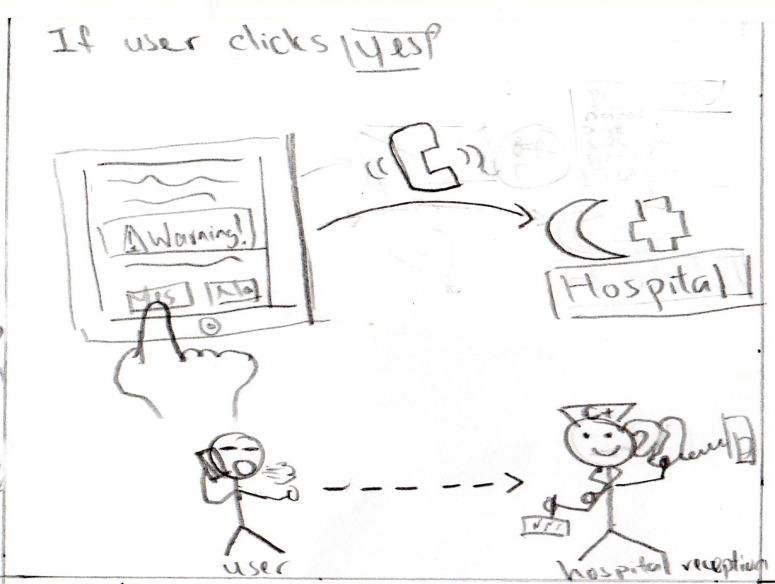 If user clicks yes
Warning!
Yes No
Hospital
user
hospital reception